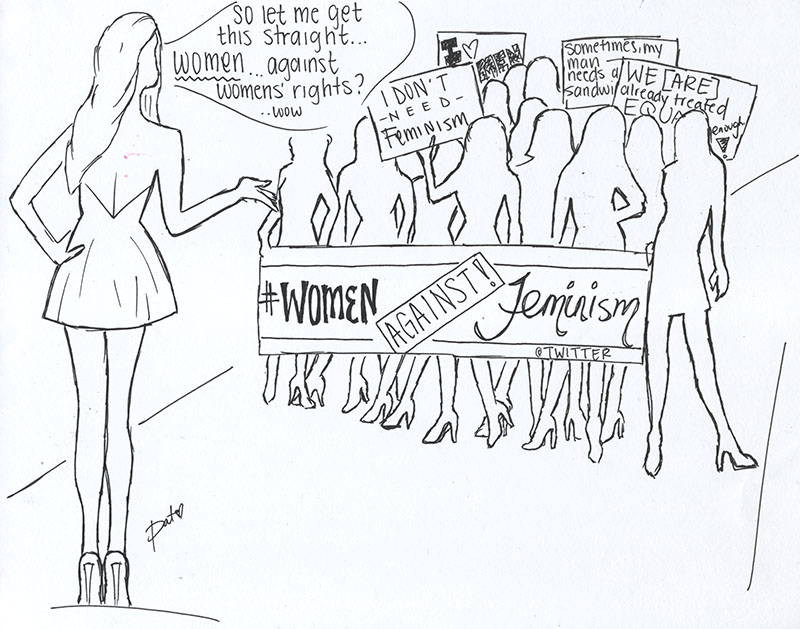 So let me get
this straight...
women...against
womens' rights?
..wow
I ♡
MEN
I DON'T
-NEED-
Feminism
sometimes, my
man
needs a
sandwi
WE [ARE]
already treated
EQUA
enough!
#WOMEN
AGAINST!
Feminism
@TWITTER
Pat♡